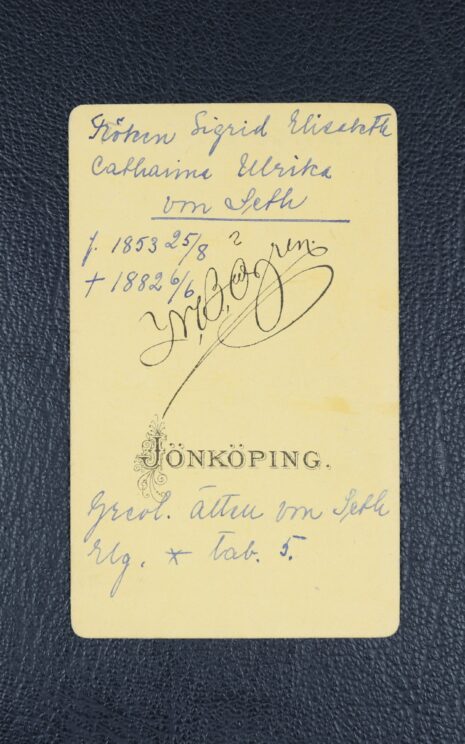 Fröken Sigrid Elisabeth
Catharina Ulrika
von Seth
f. 1853 25/8 ?
+ 1882 6/6
JÖNKÖPING.
ätten von Seth
Elg. * tab. 5.